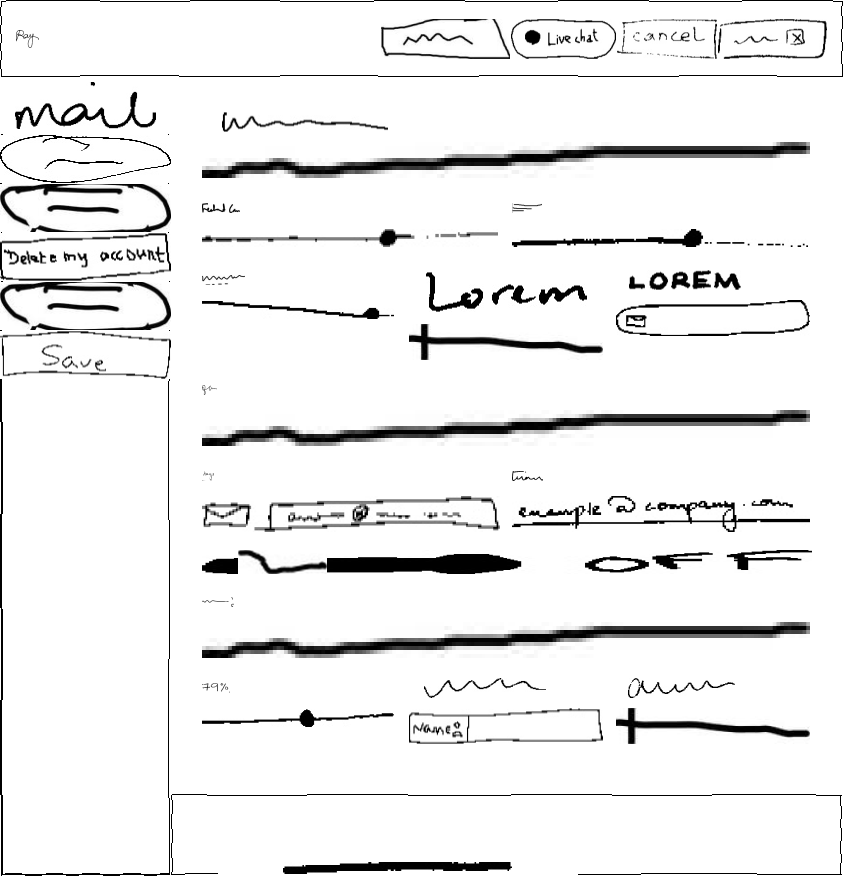 Ray
Live chat
cancel
mail
Delete my account
Save
Lorem
LOREM
example@company.com
79%
Name